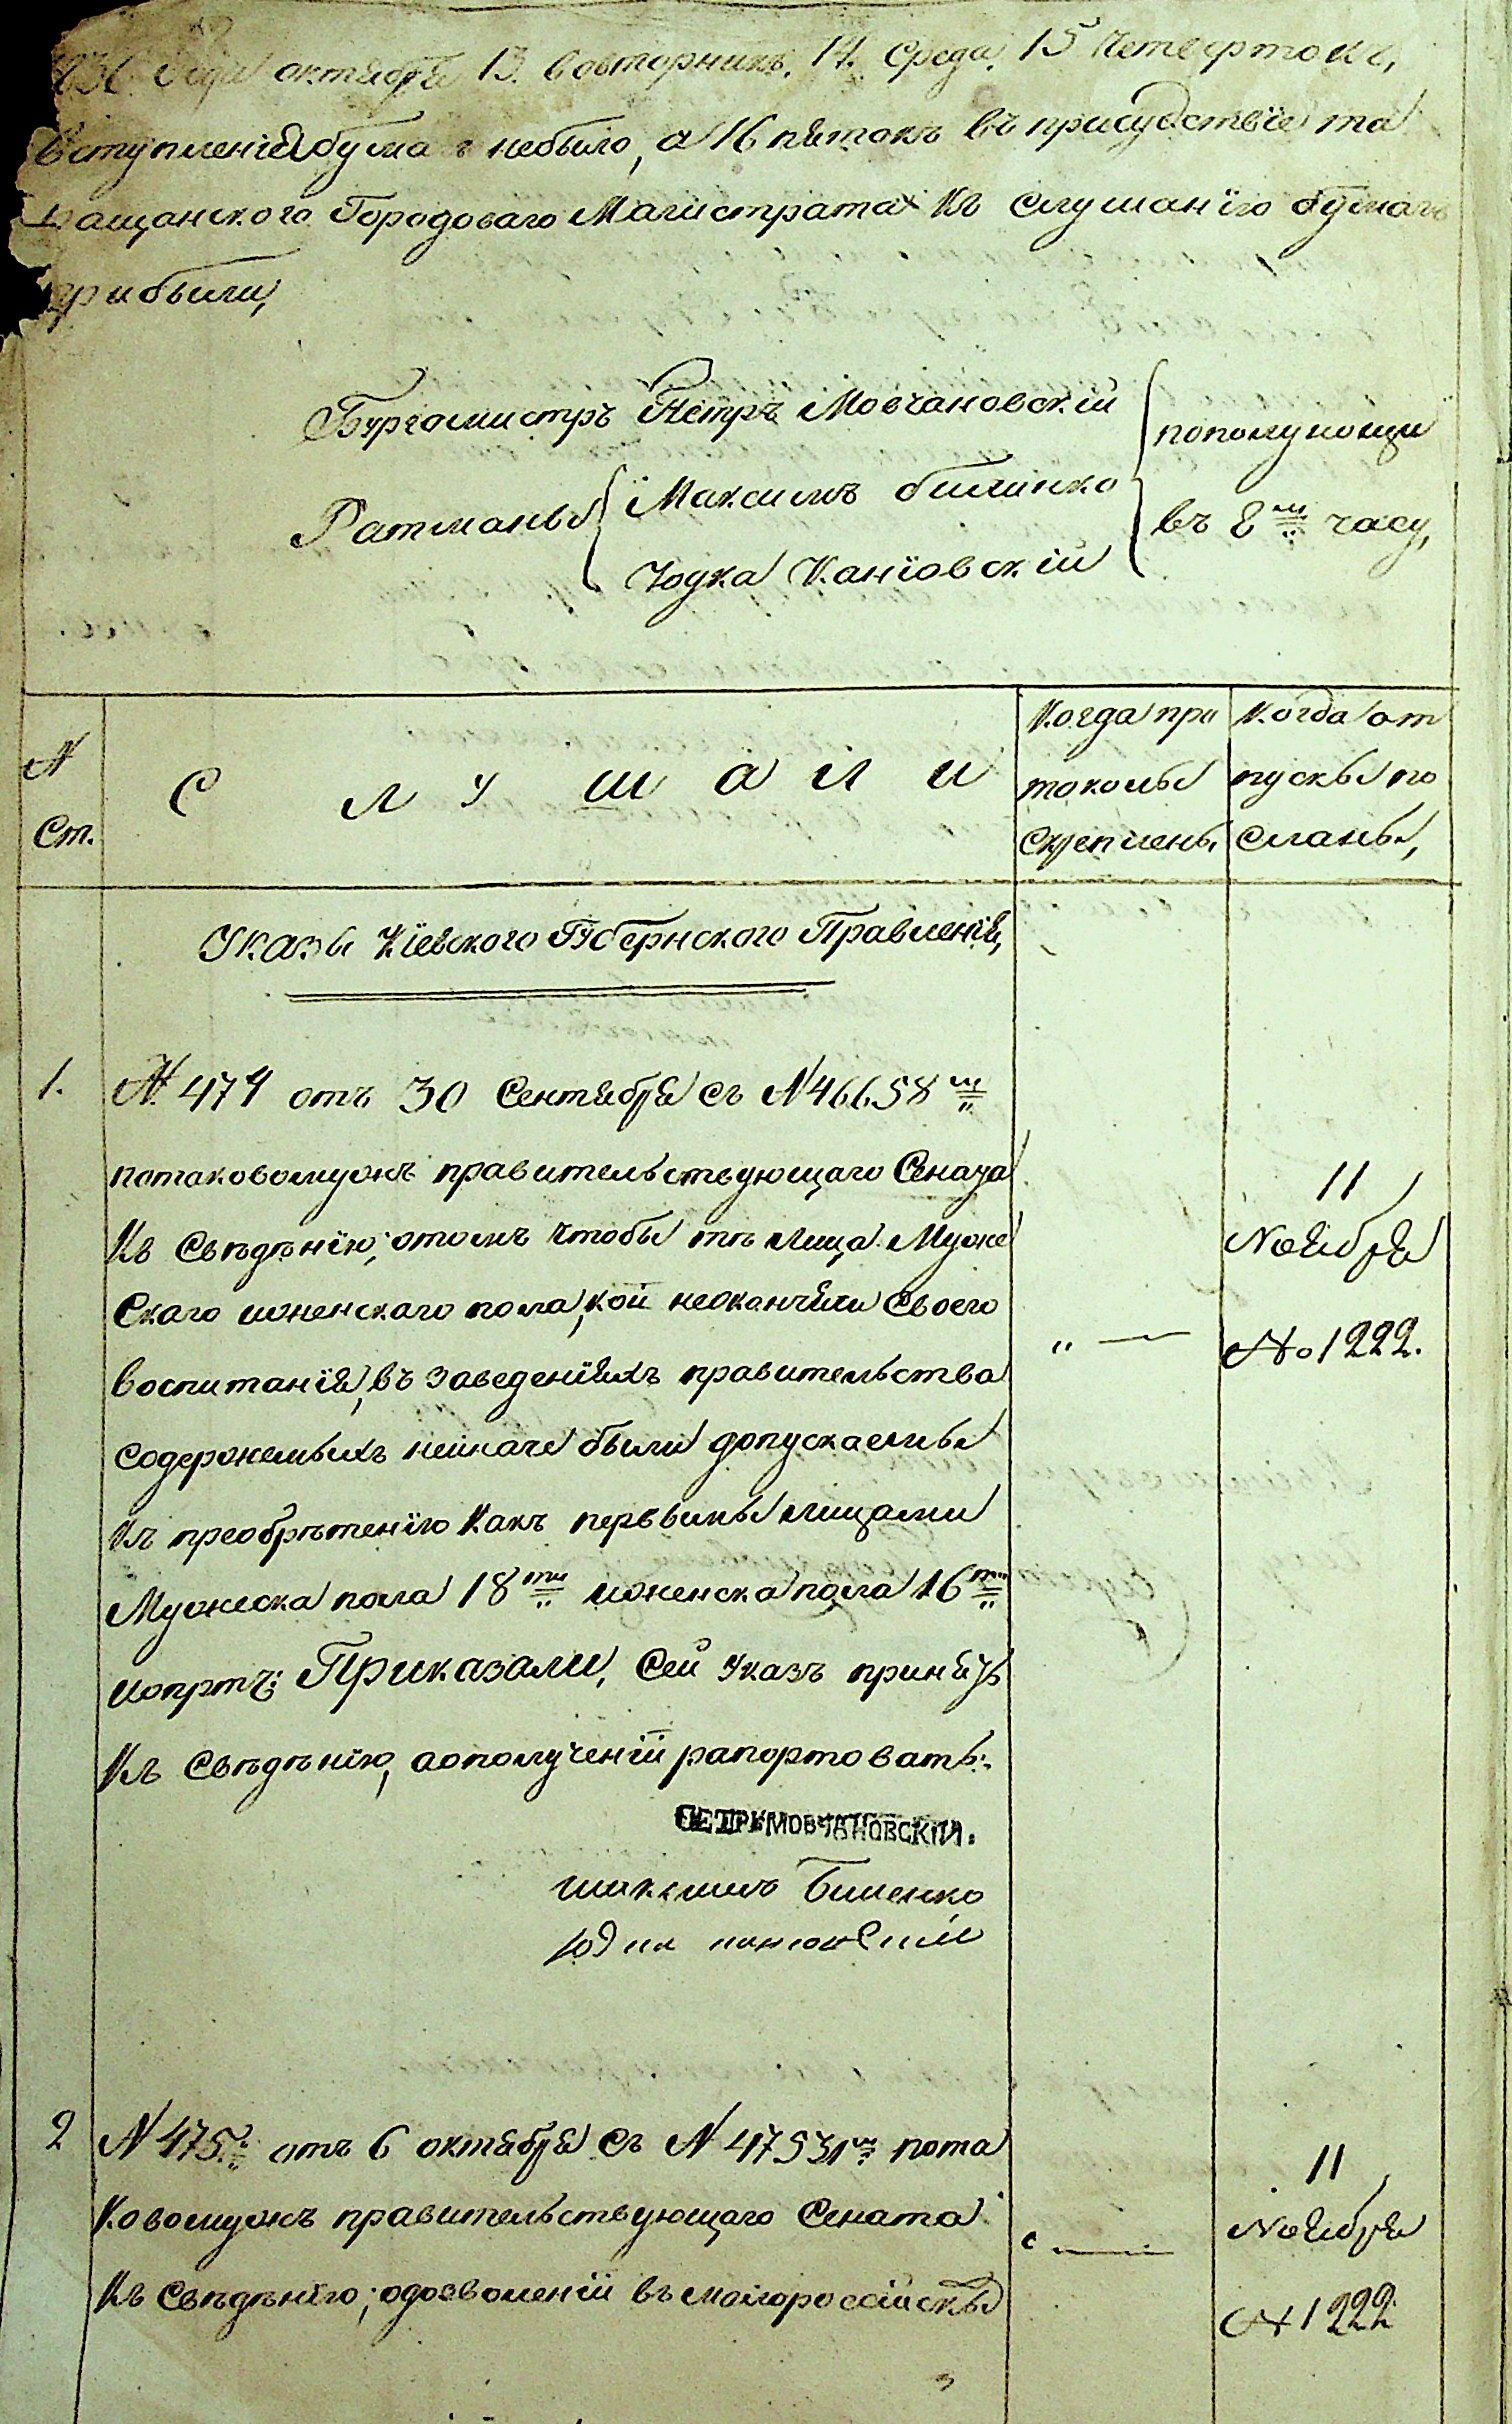 года октября 13. вовторникъ, 14. Среда, 15 Четвертокъ,
вступленія бумагъ небыло, а 16 пятокъ въ присудствіе та
ращанского Городоваго Магистрата къ слушанію бумагъ
прибыли,
Бургомистръ Петръ Мовчановскій
пополуночи
Ратманы Максимъ билинко
въ 8м часу,
Іодка Каніовскій
№ Ст.
Слушали
Когда про
токолы
скреплены
Когда от
пускы по
сланы,
Указы Кіевского Губернского Правленія,
1. № 474 отъ 30 Сентября съ № 46658м
потаковомужъ правительствующаго Сената
Къ Сведенію; отомъ чтобы те лица Муже
Скаго иженскаго пола, кои неокончили Своего
воспитанія, въ заведеніяхъ правительства
содержемыхъ неиначе были допускаемы
къ преобретенію Какъ первыми лицами
Мужеска пола 18ти иженска пола 16ти
Приказали, Сей Указъ принять
Къ Сведенію, аополученіи рапортовать.
11
Ноября
№ 1222.
ПЕТРЪ МОВЧАНОВСКІЙ.
максимъ Биленко
2 № 475. отъ 6 октября съ № 47531м пота
Ковомужъ правительствующаго Сената
Къ Сведенію; одозволеніи въ малороссійскы
11
Ноября
№ 1222